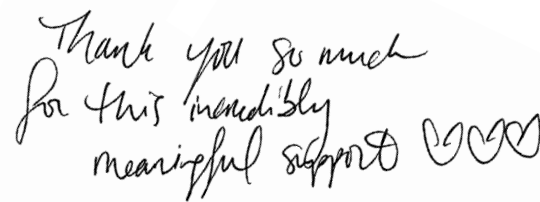 Thank you so much
for this incredibly
meaningful support ♡♡♡